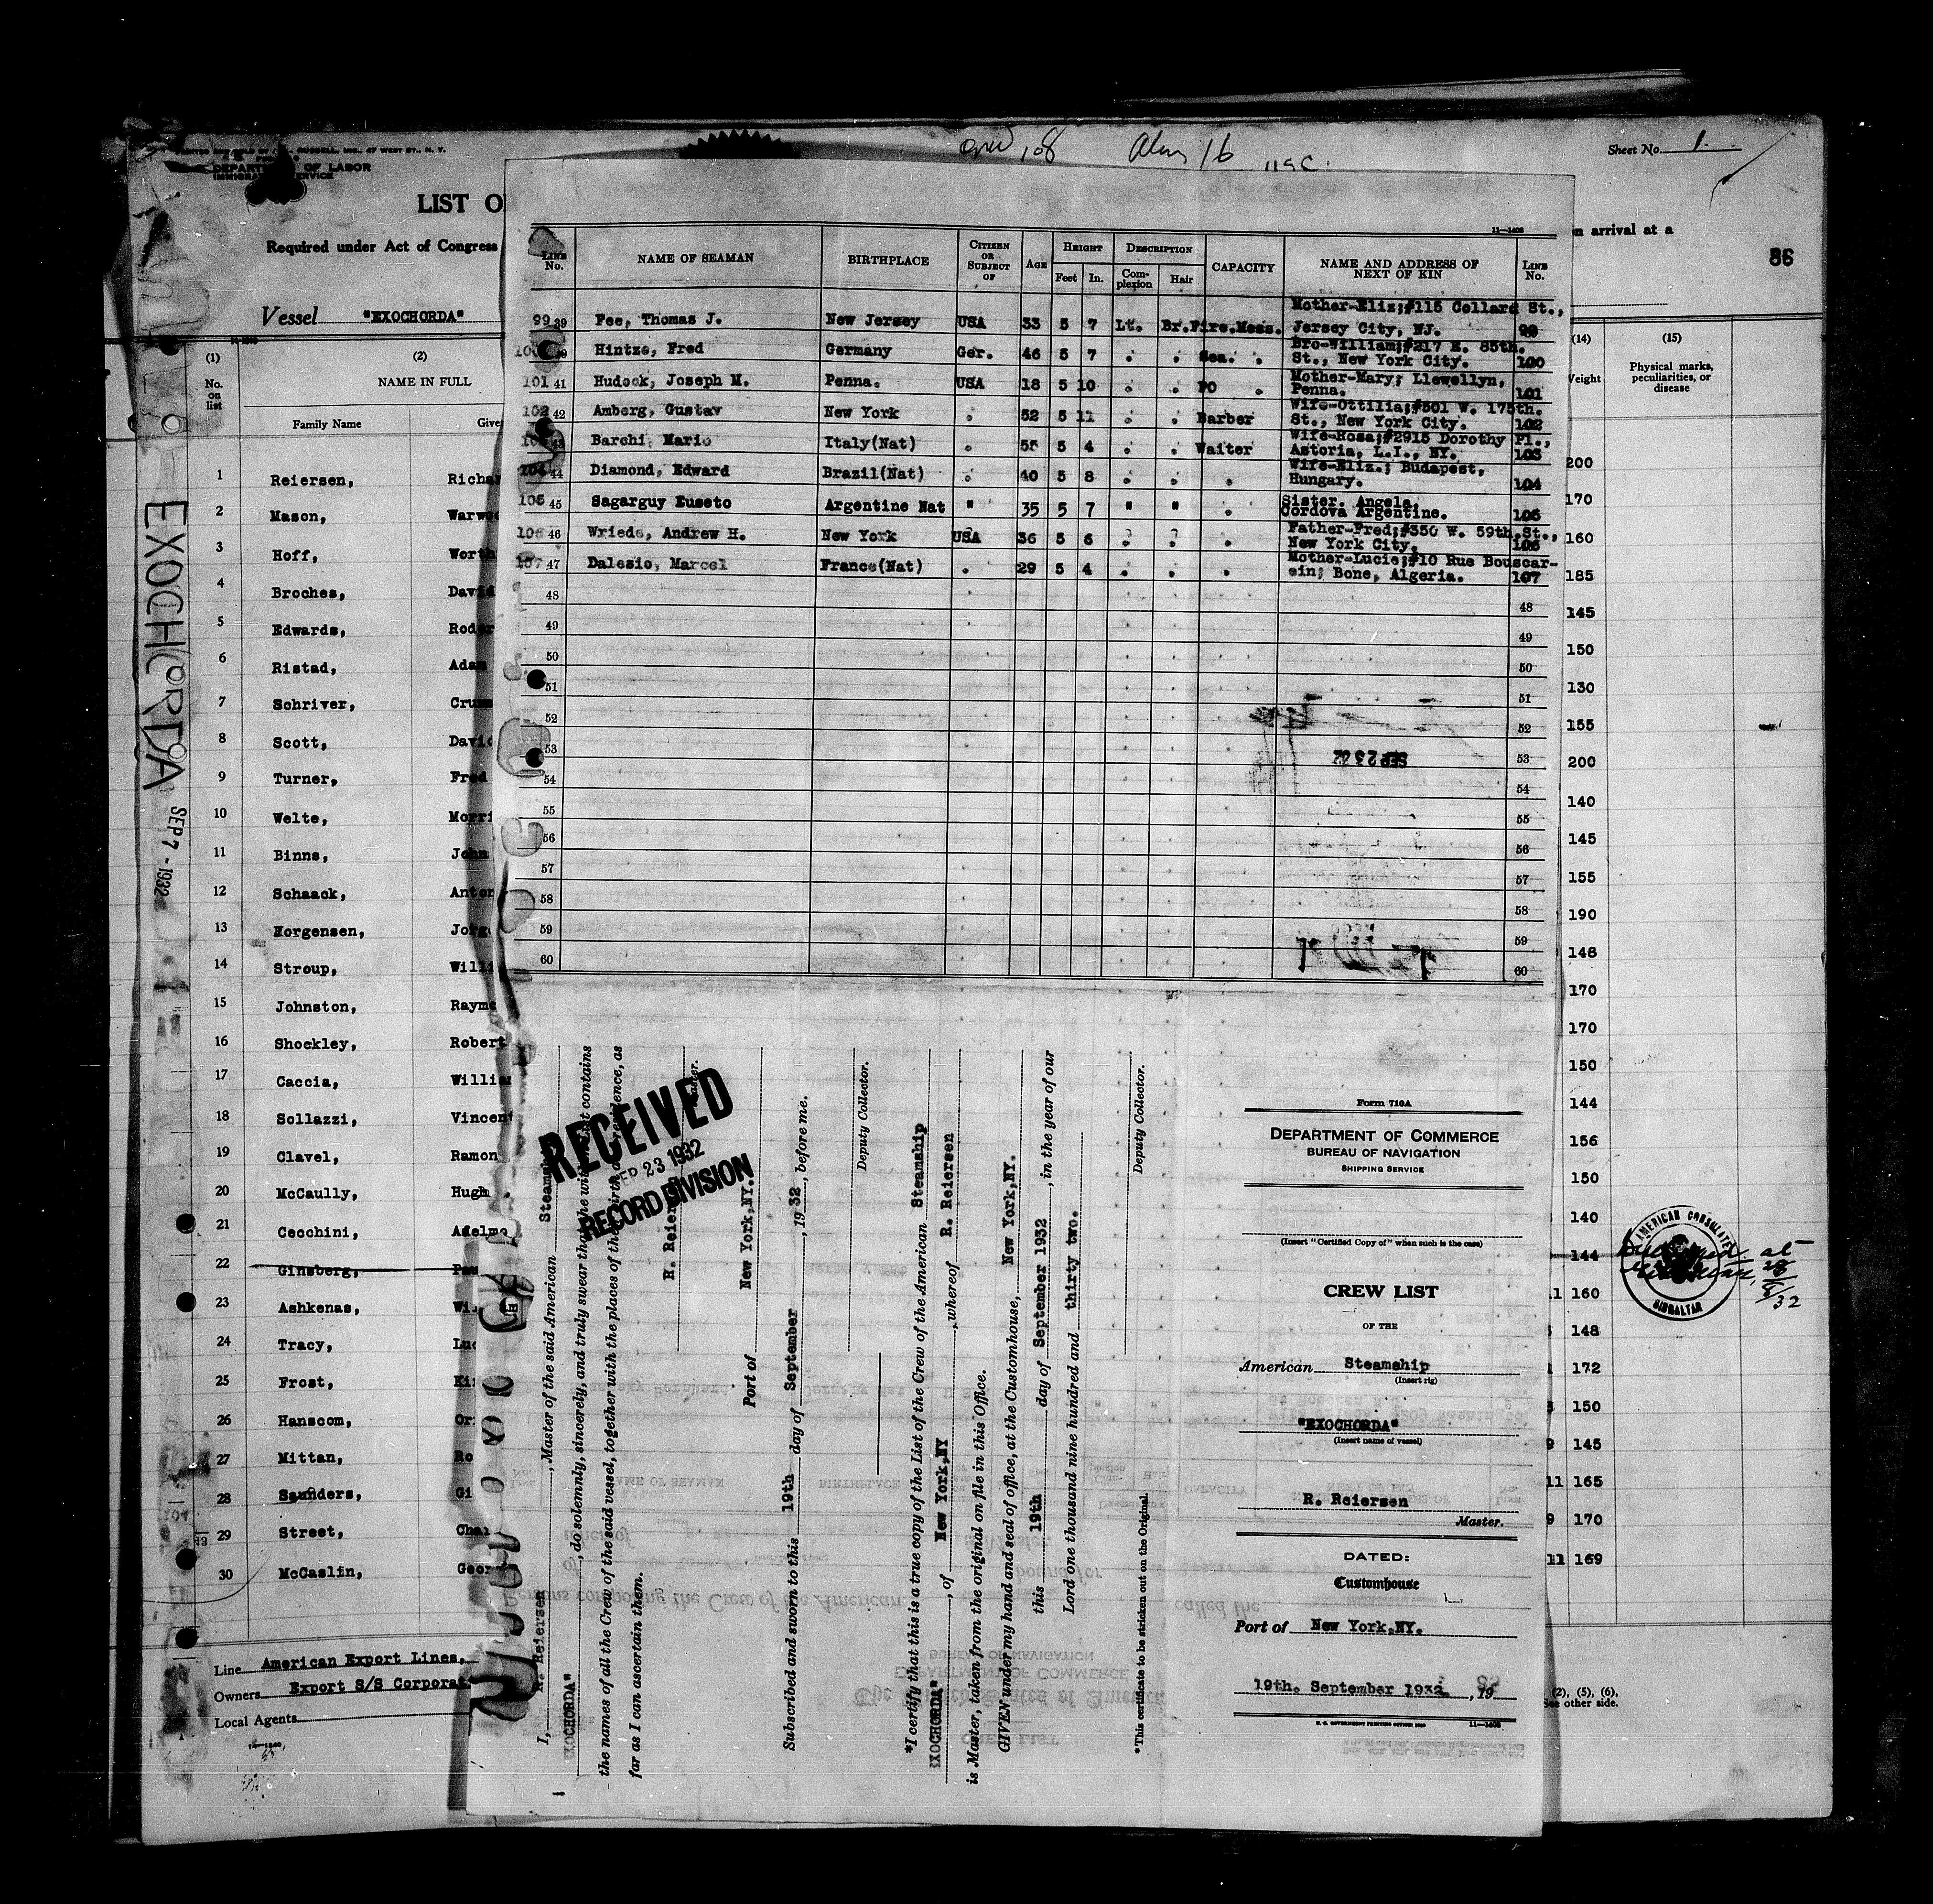 PRINTED AND SOLD BY RUSSELL, INC., 47 WEST ST., N. Y.
DEPARTMENT OF LABOR
IMMIGRATION SERVICE
LIST O
Required under Act of Congress
Vessel "EXOCHORDA"
16
Sheet No. 1.
n arrival at a
86
EXOCHORDA
SEP 7 - 1932
(1) (2)
No. on list
NAME IN FULL
Family Name Give
1 Reiersen, Richa
2 Mason, Warwo
3 Hoff, Wort
4 Broches, David
5 Edwards, Rod
6 Ristad, Adam
7 Schriver, Cru
8 Scott, David
9 Turner, Fred
10 Welte, Morri
11 Binns, John
12 Schaack, Anton
13 Jorgensen, Jorg
14 Stroup, Will
15 Johnston, Raymo
16 Shockley, Robert
17 Caccia, Willi
18 Sollazzi, Vincent
19 Clavel, Ramon
20 McCaully, Hugh
21 Cecchini, Adelmo
22 Ginsberg,
23 Ashkenas, Wi
24 Tracy, Luc
25 Frost, Ki
26 Hanscom, Or
27 Mittan, Ro
28 Saunders, Gi
29 Street, Char
30 McCaslin, Geor
Line American Export Lines,
Owners Export S/S Corporat
Local Agents
LINE No. NAME OF SEAMAN BIRTHPLACE CITIZEN OR SUBJECT OF AGE HEIGHT DESCRIPTION CAPACITY NAME AND ADDRESS OF NEXT OF KIN LINE No.
Feet In. Complexion Hair
99 39 Fee, Thomas J. New Jersey USA 33 5 7 Lt. Br. Fire.Mess. Mother-Eliz;#115 Collard St., Jersey City, NJ. 99
100 Hintze, Fred Germany Ger. 46 5 7 . . Sea. . Bro-William;#217 E. 85th. St., New York City. 100
101 41 Hudock, Joseph M. Penna. USA 18 5 10 . . PO . Mother-Mary; Llewellyn, Penna. 101
102 42 Amberg, Gustav New York . 52 5 11 . . Barber Wife-Ottilia;#501 W. 175th. St., New York City. 102
103 43 Barchi, Mario Italy(Nat) . 55 5 4 . . Waiter Wife-Rosa;#2915 Dorothy Pl., Astoria, L.I., NY. 103
104 44 Diamond, Edward Brazil(Nat) . 40 5 8 . . . Wife-Eliz.; Budapest, Hungary. 104
105 45 Sagarguy Euseto Argentine Nat " 35 5 7 " " . Sister. Angela. Cordova Argentine. 105
106 46 Wriede, Andrew H. New York USA 36 5 6 . . . Father-Fred;#350 W. 59th.St., New York City. 106
107 47 Dalesio, Marcel France(Nat) . 29 5 4 . . . Mother-Lucie;#10 Rue Bouscarein; Bone, Algeria. 107
48 48
49 49
50 50
51 51
52 52
53 53
54 54
55 55
56 56
57 57
58 58
59 59
60 60
(14) (15)
Weight
Physical marks, peculiarities, or disease
200
170
160
185
145
150
130
155
200
140
145
155
190
148
170
170
150
144
156
150
140
144
160
148
172
150
145
11 165
9 170
11 169
AMERICAN CONSULATE
GIBRALTAR
at
(2), (5), (6),
See other side.
RECEIVED
SEP 23 1932
RECORD DIVISION
I, R. Reiersen, Master of the said American Steamship
EXOCHORDA", do solemnly, sincerely, and truly swear that the within list contains
the names of all the Crew of the said vessel, together with the places of their birth and residence, as
far as I can ascertain them.
R. Reiersen
Master.
Port of New York,NY.
Subscribed and sworn to this 19th day of September, 19 32, before me.
Deputy Collector.
*I certify that this is a true copy of the List of the Crew of the American Steamship
EXOCHORDA", of New York,NY, whereof R. Reiersen
is Master, taken from the original on file in this Office.
GIVEN under my hand and seal of office, at the Customhouse, New York,NY.
this 19th day of September 1932, in the year of our
Lord one thousand nine hundred and thirty two.
Deputy Collector.
*This certificate to be stricken out on the Original.
Form 710A
DEPARTMENT OF COMMERCE
BUREAU OF NAVIGATION
SHIPPING SERVICE
(Insert "Certified Copy of" when such is the case)
CREW LIST
OF THE
American Steamship
(Insert rig)
"EXOCHORDA"
(Insert name of vessel)
R. Reiersen
Master.
DATED:
Customhouse
Port of New York,NY.
19th. September 1932, 19
U. S. GOVERNMENT PRINTING OFFICE 11—1408